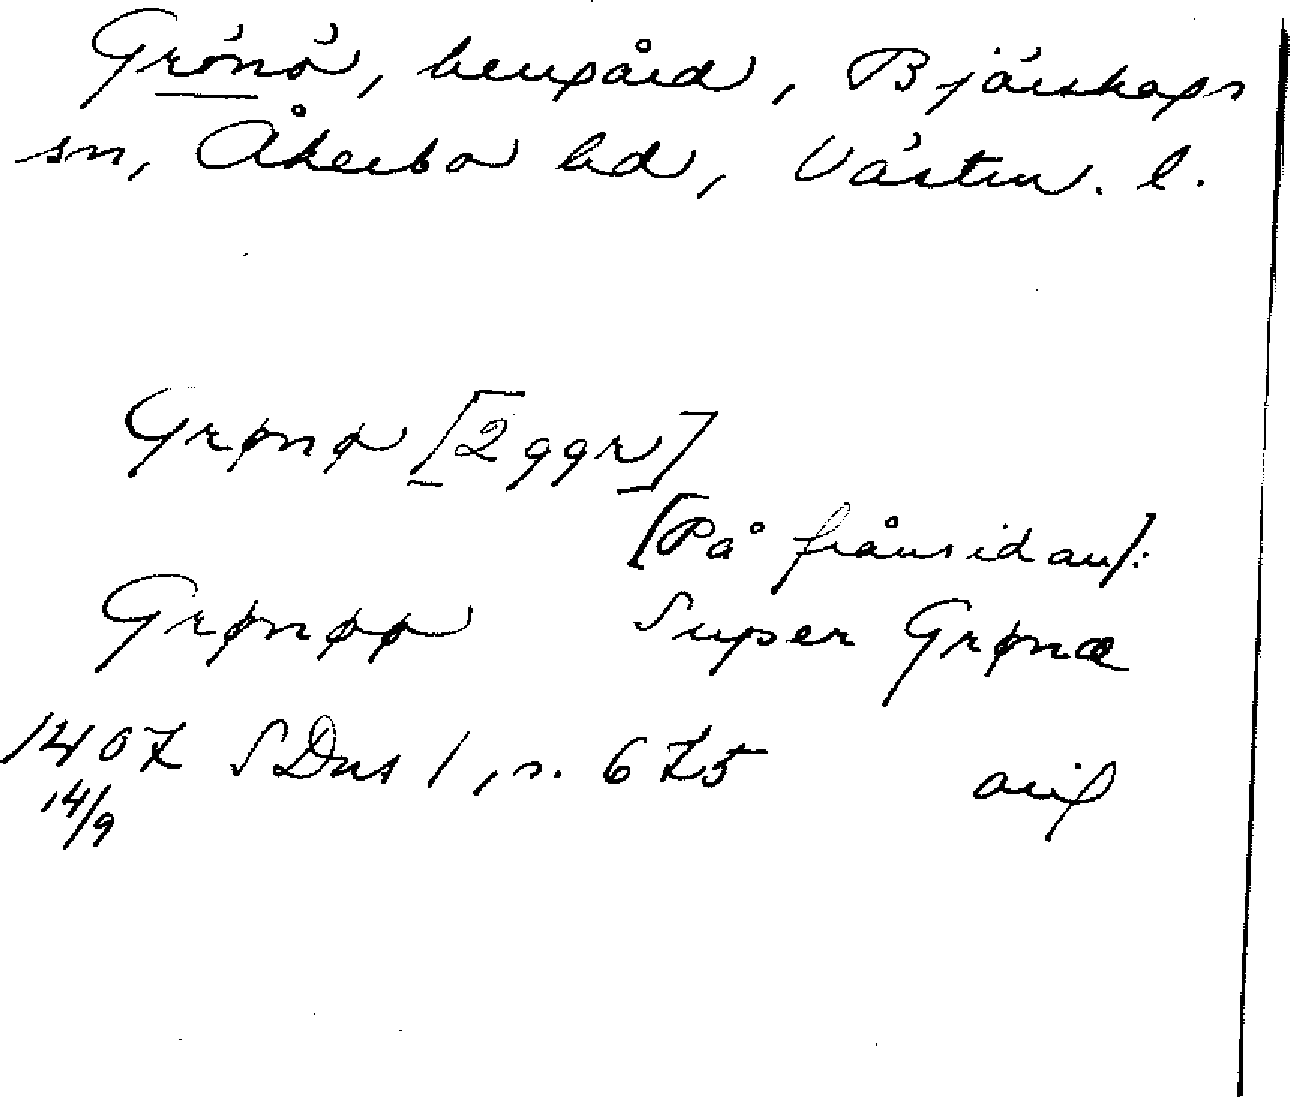 Grönö, herrgård, Björskogs
sn, Åkerbo hd, Västm. l.
Grønø [2 ggr]
[På frånsidan]:
Grønøø Super Grønœ
1407 SDns 1, s. 675 orig
14/9